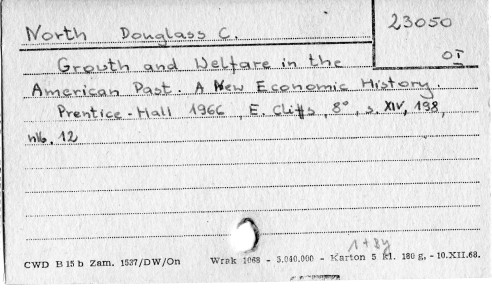 North Douglass C.
23050
OI
Growth and Welfare in the
American Past. A New Economic History.
Prentice-Hall 1966, E. Cliffs, 8°, s. XIV, 198,
nlb. 12
1+8y
CWD B 15 b Zam. 1537/DW/On Wrak 1068 - 3.040.000 - Karton 5 kl. 180 g. - 10.XII.68.